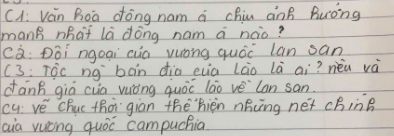 C1: Văn hóa đông nam á chịu ảnh hưởng
mạnh nhất là đông nam á nào?
C2: Đối ngoại của vương quốc lan san
C3: Tộc ng bản địa của lào là ai? nêu và
đánh giá của vương quốc lào về lan san.
C4: vẽ trục thời gian thể hiện những nét chính
của vương quốc campuchia